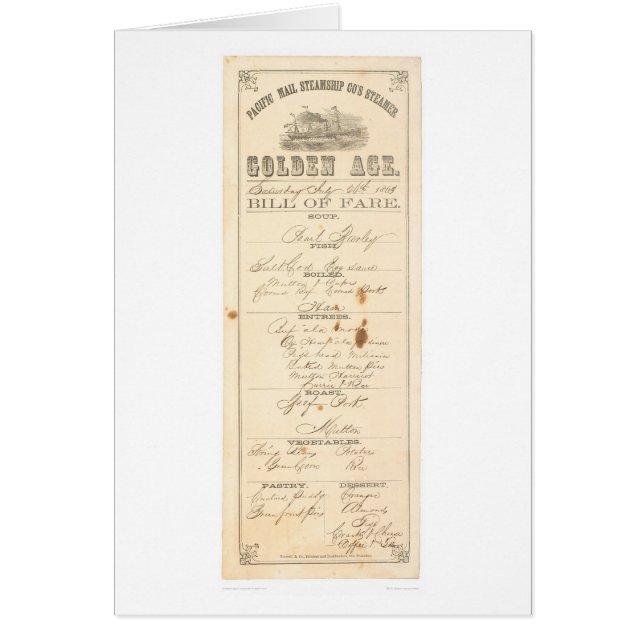 PACIFIC MAIL STEAMSHIP CO'S STEAMER
GOLDEN AGE.
Saturday July 1869
BILL OF FARE.
SOUP.
Pearl Barley
FISH.
Salt Cod Egg Sauce
BOILED.
Mutton & Capers
Corned Beef Corned Pork
Ham
ENTREES.
Beef a la mode
Ox a la
Pigs head
Baked Mutton Pies
Mutton Harricot
Currie & Rice
ROAST.
Beef Pork.
Mutton
VEGETABLES.
String Beans Potatoes
Green Corn Rice
PASTRY. DESSERT.
Custard Puddg Oranges
Green fruit Pies Almonds
Figs
Crackers & Cheese
Coffee & Tea